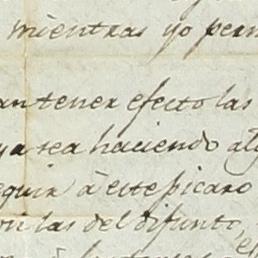 mientras yo perm
an tener efecto las
ya sea haciendo alg
eguir à este picaro
on las del difunto,